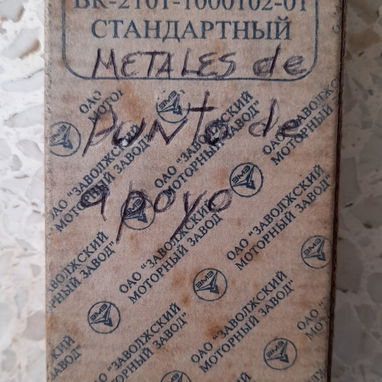 ВК-2101-1000102-01
СТАНДАРТНЫЙ
METALES de
Punto de
apoyo
ОАО "ЗАВОЛЖСКИЙ
МОТОРНЫЙ ЗАВОД"
ОАО "ЗАВОЛЖСКИЙ
МОТОРНЫЙ ЗАВОД"
ОАО "ЗАВОЛЖСКИЙ
МОТОРНЫЙ ЗАВОД"
ОАО "ЗАВОЛЖСКИЙ
МОТОРНЫЙ ЗАВОД"
ОАО "ЗАВОЛЖСКИЙ
МОТОРНЫЙ ЗАВОД"
ОАО "ЗАВОЛЖСКИЙ
МОТОРНЫЙ ЗАВОД"
ОАО "ЗАВОЛЖСКИЙ
МОТОРНЫЙ ЗАВОД"